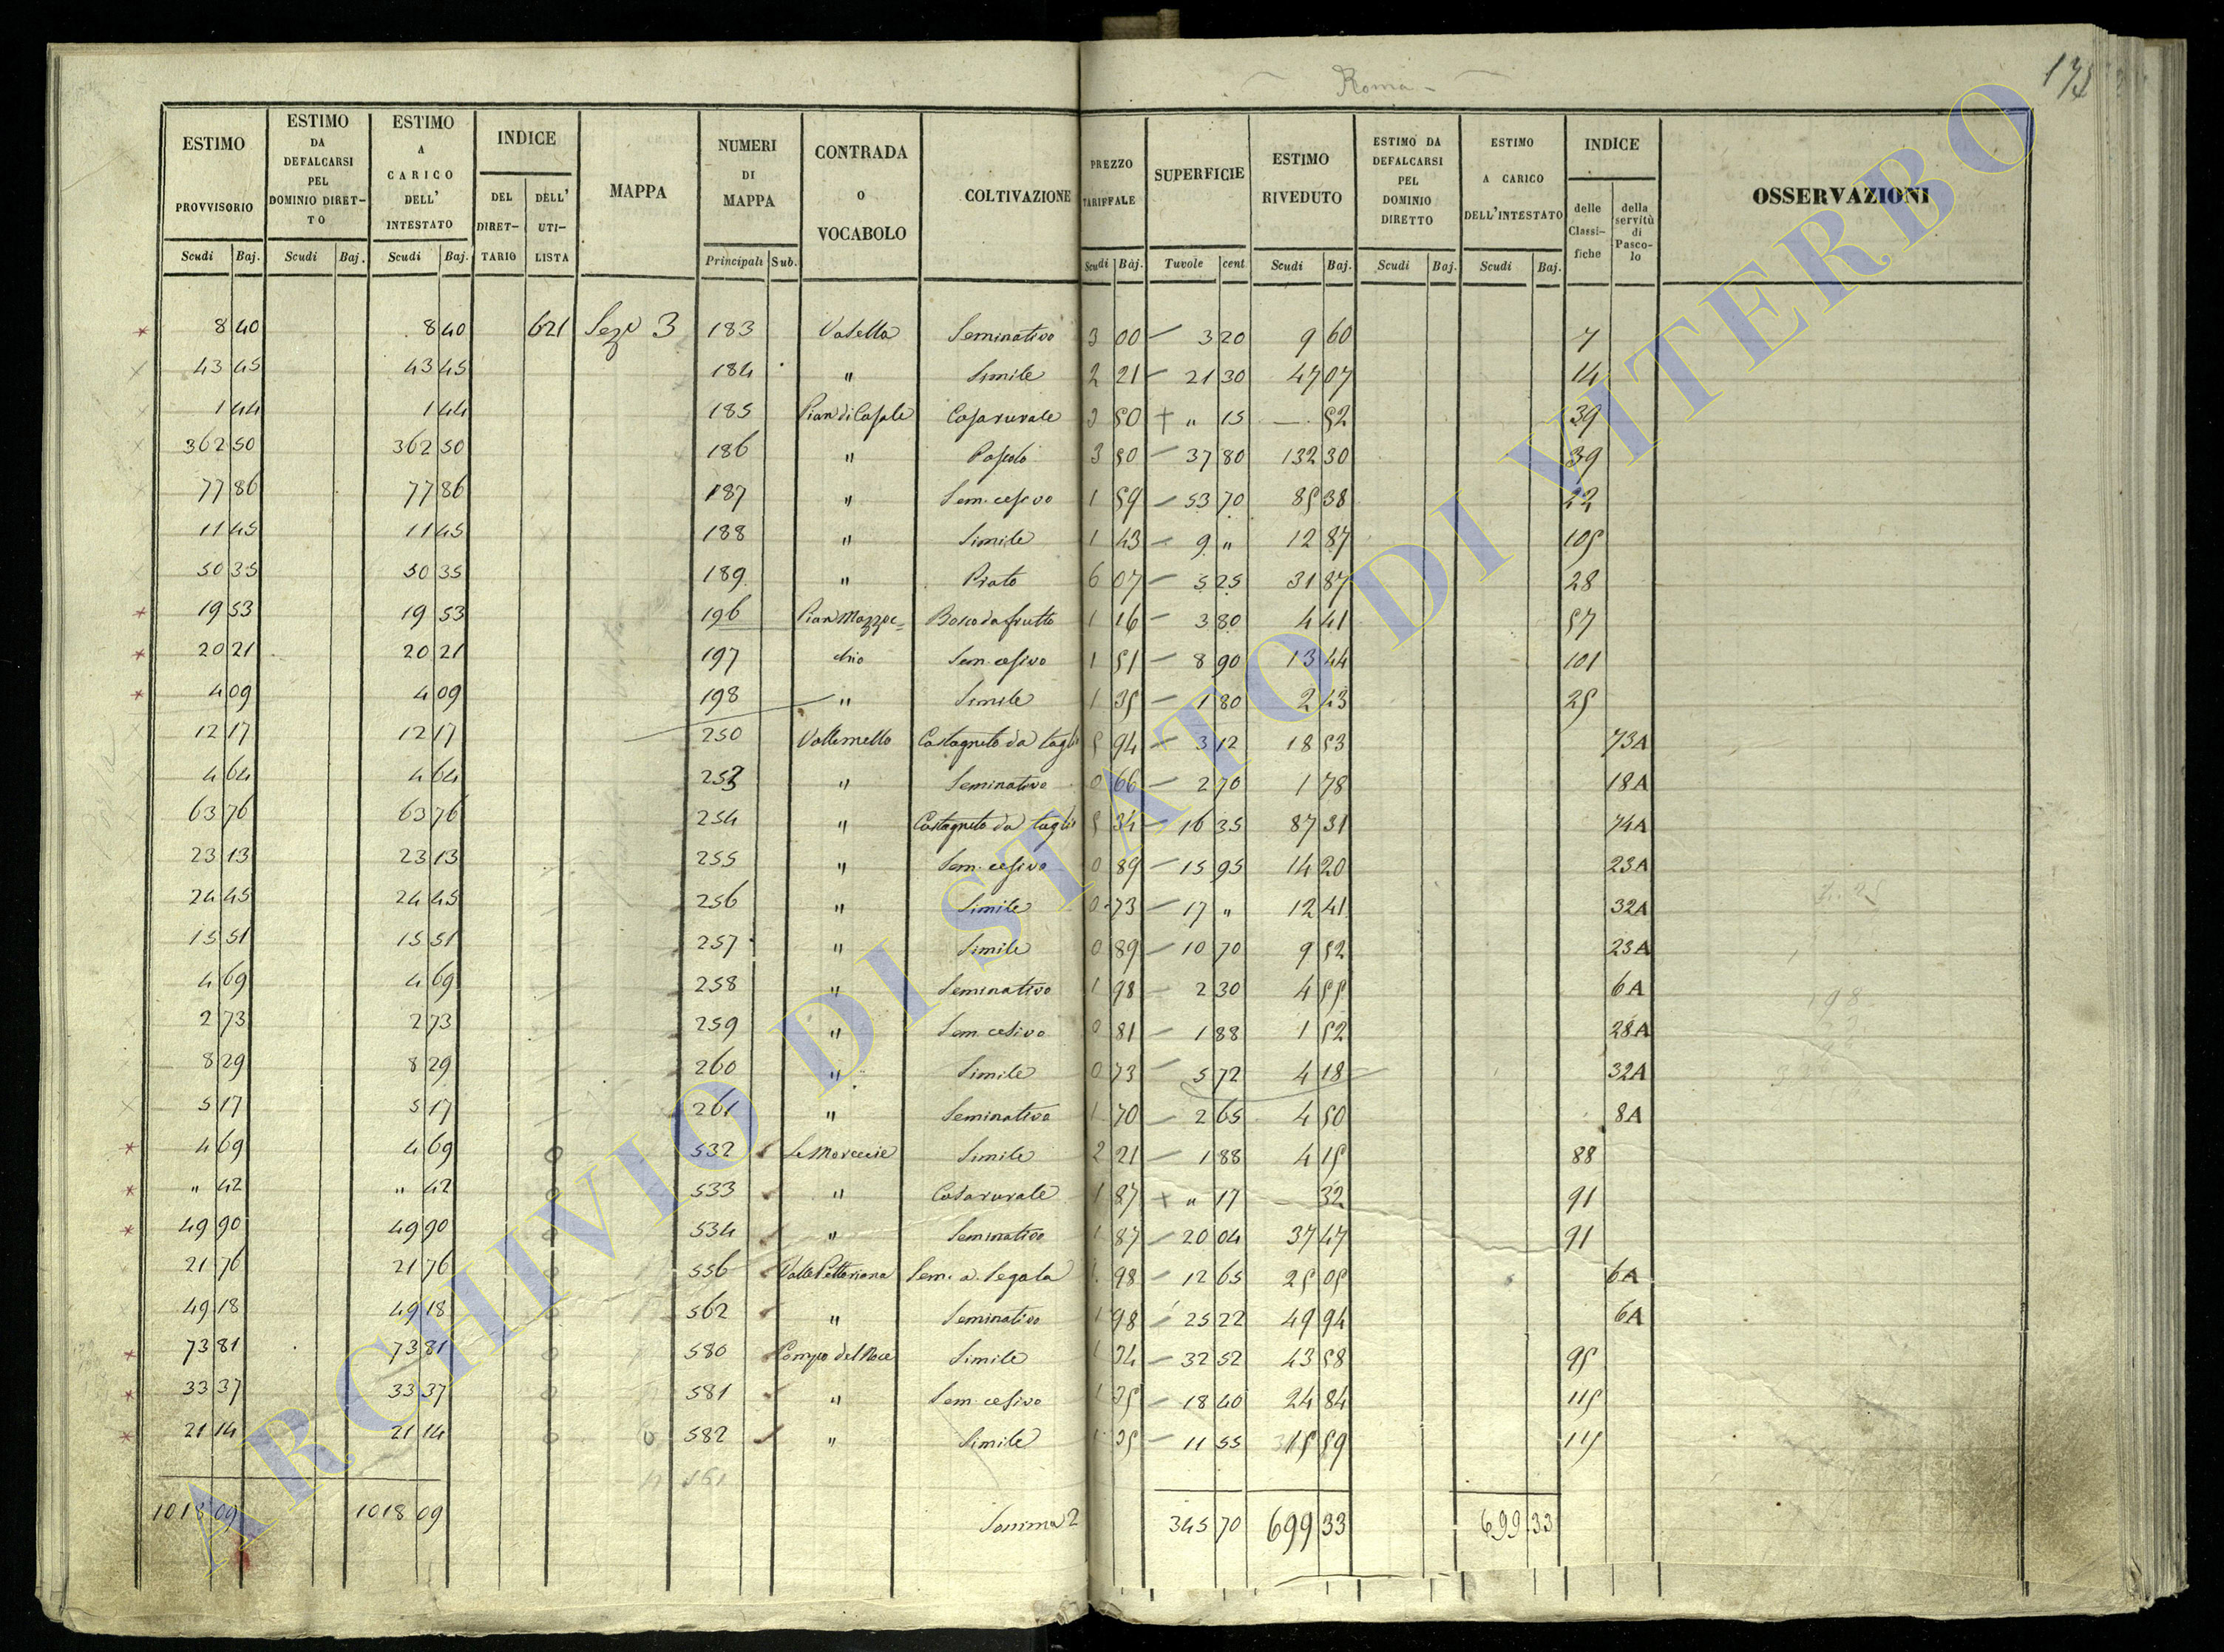 Roma
174
ESTIMO PROVVISORIO | ESTIMO DA DEFALCARSI PEL DOMINIO DIRETTO | ESTIMO A CARICO DELL' INTESTATO | INDICE DEL DIRETTARIO | DELL' UTILISTA | MAPPA | NUMERI DI MAPPA | CONTRADA O VOCABOLO | COLTIVAZIONE | PREZZO TARIFFALE | SUPERFICIE | ESTIMO RIVEDUTO | ESTIMO DA DEFALCARSI PEL DOMINIO DIRETTO | ESTIMO A CARICO DELL'INTESTATO | INDICE delle Classifiche | della servitù di Pascolo | OSSERVAZIONI
Scudi Baj. | Scudi Baj. | Scudi Baj. | Principali Sub. | Scudi Baj. | Tavole cent | Scudi Baj. | Scudi Baj. | Scudi Baj.
8 40 | 8 40 | 621 | Seze 3 | 183 | Vasella | Seminativo | 3 00 | 3 20 | 9 60 | 7
43 45 | 43 45 | 184 | " | Simile | 2 21 | 21 30 | 47 07 | 14
1 44 | 1 44 | 185 | Pian di Casale | Casa rurale | 3 50 | " 15 | 52 | 39
362 50 | 362 50 | 186 | " | Pascolo | 3 50 | 37 80 | 132 30 | 39
77 86 | 77 86 | 187 | " | Sem. cesivo | 1 59 | 53 70 | 85 38 | 22
11 45 | 11 45 | 188 | " | Simile | 1 43 | 9 " | 12 87 | 105
50 35 | 50 35 | 189 | " | Prato | 6 07 | 5 25 | 31 87 | 28
19 53 | 19 53 | 196 | Pian Mazzoc= | Bosco da frutto | 1 16 | 3 80 | 4 41 | 57
20 21 | 20 21 | 197 | chio | Sem. cesivo | 1 51 | 8 90 | 13 44 | 101
4 09 | 4 09 | 198 | " | Simile | 1 35 | 1 80 | 2 43 | 25
12 17 | 12 17 | 250 | Vallemello | Castagneto da taglio | 5 94 | 3 12 | 18 53 | 73A
4 64 | 4 64 | 253 | " | Seminativo | 0 66 | 2 70 | 1 78 | 18A
63 76 | 63 76 | 254 | " | Castagneto da taglio | 5 34 | 16 35 | 87 31 | 74A
23 13 | 23 13 | 255 | " | Sem. cesivo | 0 89 | 15 95 | 14 20 | 23A
24 45 | 24 45 | 256 | " | Simile | 0 73 | 17 " | 12 41 | 32A
15 51 | 15 51 | 257 | " | Simile | 0 89 | 10 70 | 9 52 | 23A
4 69 | 4 69 | 258 | " | Seminativo | 1 98 | 2 30 | 4 55 | 6A
2 73 | 2 73 | 259 | " | Sem. cesivo | 0 81 | 1 88 | 1 52 | 28A
8 29 | 8 29 | 260 | " | Simile | 0 73 | 5 72 | 4 18 | 32A
5 17 | 5 17 | 261 | " | Seminativo | 1 70 | 2 65 | 4 50 | 8A
4 69 | 4 69 | 532 | Le Moreccie | Simile | 2 21 | 1 88 | 4 15 | 88
" 42 | " 42 | 533 | " | Casa rurale | 1 87 | " 17 | 32 | 91
49 90 | 49 90 | 534 | " | Seminativo | 1 87 | 20 04 | 37 47 | 91
21 76 | 21 76 | 556 | Valle | Sem. a Segala | 1 98 | 12 65 | 25 05 | 6A
49 18 | 49 18 | 562 | " | Seminativo | 1 98 | 25 22 | 49 94 | 6A
73 81 | 73 81 | 580 | Campo del Noce | Simile | 1 34 | 32 52 | 43 58 | 95
33 37 | 33 37 | 581 | " | Sem. cesivo | 1 35 | 18 40 | 24 84 | 115
21 14 | 21 14 | 582 | " | Simile | 1 35 | 11 55 | 15 59 | 115
1018 09 | 1018 09 | Somma 2 | 345 70 | 699 33 | 699 33
ARCHIVIO DI STATO DI VITERBO